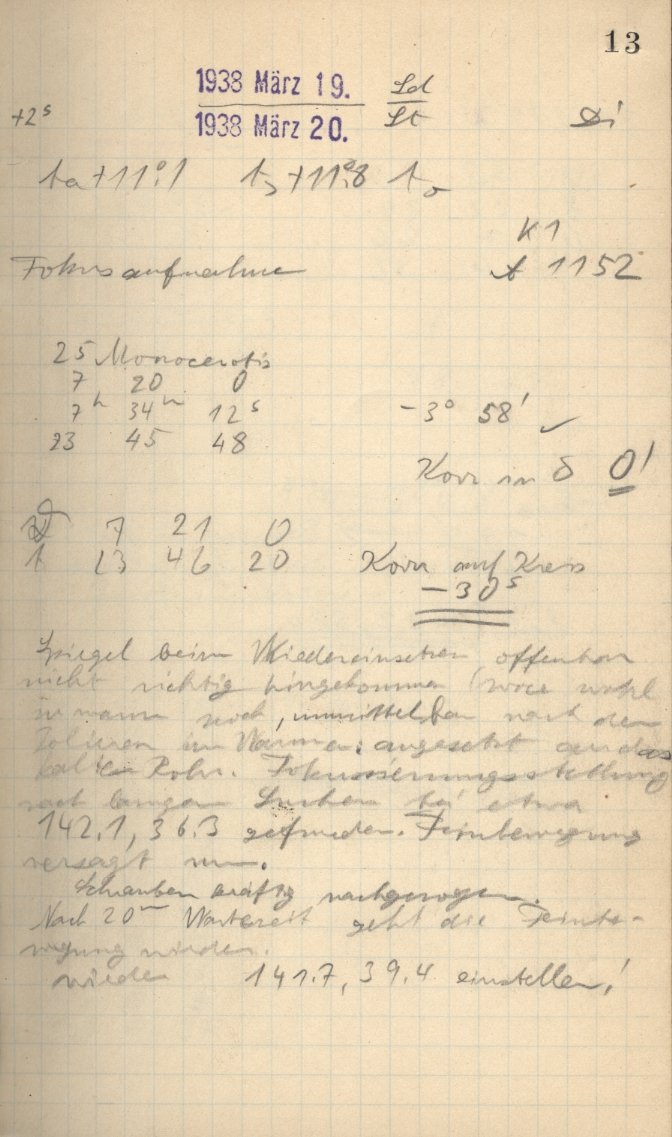 13
1938 März 19. Sd
1938 März 20. St
+2ˢ Di
ta +11°.1 ts +11°.8 to
K1
A 1152
Fokusaufnahme
25 Monocerotis
7 20 0
7ʰ 34ᵐ 12ˢ -3° 58' ✓
23 45 48
Korr in δ 0'
7 21 0
t 23 46 20 Korr auf Kreis
-30ˢ
Spiegel beim Wiedereinsetzen offenbar
nicht richtig hingekommen (wohl
zu warm noch, unmittelbar nach dem
Polieren im Warmen angesetzt an das
kalte Rohr. Fokussierungsstellung
nach langem Suchen bei etwa
142.1, 36.3 gefunden. Feinbewegung
versagt nun.
Schrauben kräftig nachgezogen.
Nach 20ᵐ Wartezeit geht die Feinbe-
wegung wieder.
wieder 141.7, 39.4 einstellen!